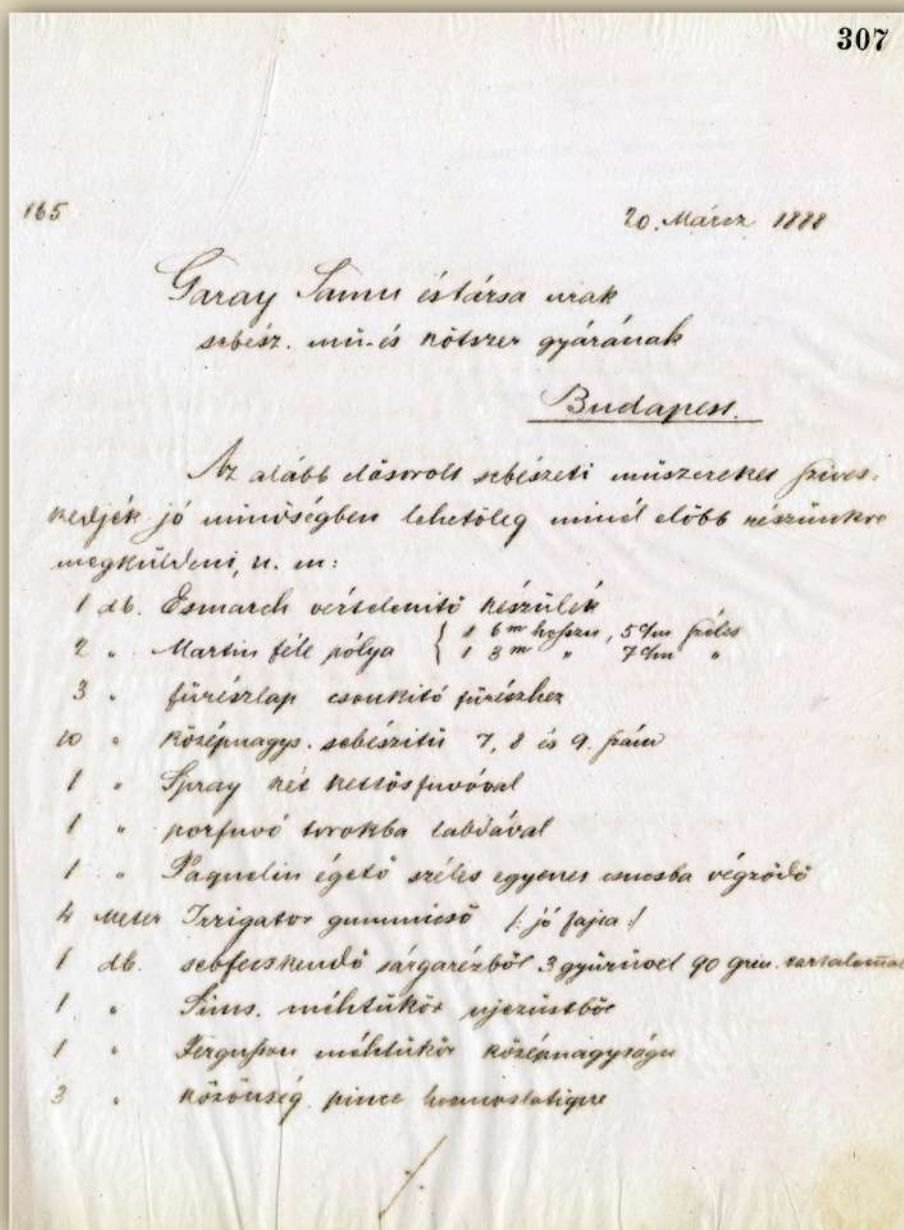 307
165 20. Márcz 1888
Garay Samu és társa urak
sebész. mű- és kötszer gyárának
Budapest.
Az alább elősorolt sebészeti műszereket szives-
kedjék jó minőségben lehetőleg minél előbb részünkre
megküldeni, u. m:
1 db. Esmarch vértelenitő készülék
2 " Martin féle pólya { 1 6 m hosszu, 5 c/m széles
1 3 m " 7 c/m "
3 " fürészlap csonkitó fürészhez
10 " középnagys. sebészitű 7, 8 és 9. szám
1 " Spray két kettősfuvóval
1 " porfuvó torokba labdával
1 " Paquelin égető széles egyenes csucsba végződő
4 Meter Irrigator gummicső /: jó fajta :/
1 db. sebfecskendő sárgarézből 3 gyürüvel 90 grm. tartalommal
1 " Sims. méhtükör ujezüstből
1 " Fergusson méhtükör középnagyságu
3 " közönség. pince hemostatique
./.